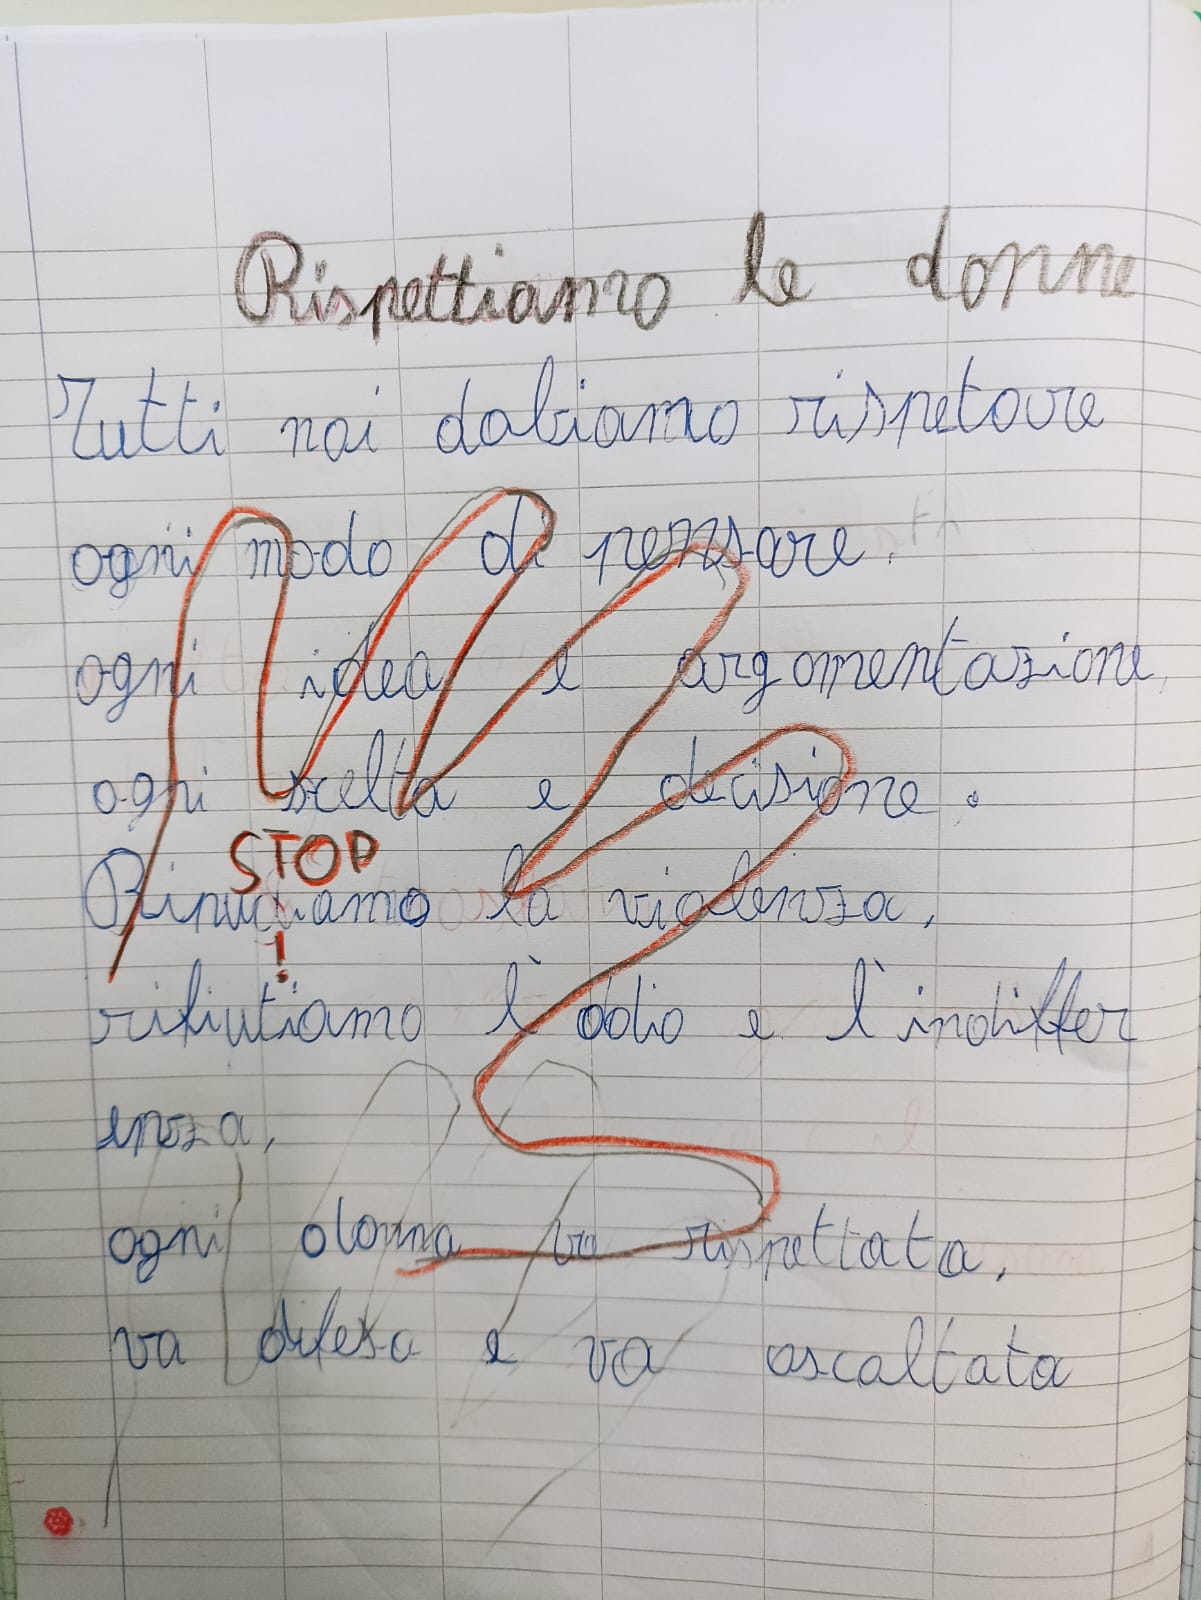 Rispettiamo le donne
Tutti noi dobiamo rispetare
ogni modo di pensare.
ogni idea e argomentazione,
ogni scelta e decisione.
STOP
Ripudiamo la violenza,
!
rifiutiamo l'odio e l'indiffer
enza,
ogni donna va rispettata,
va difesa e va ascoltata